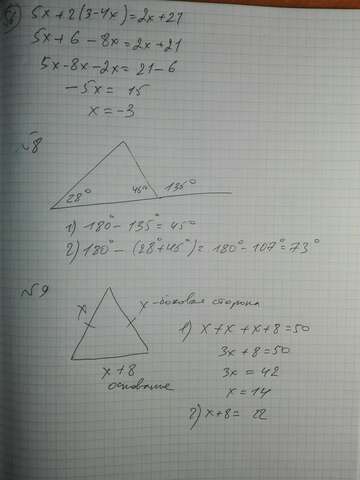 5x + 2(3-4x) = 2x + 21
5x + 6 - 8x = 2x + 21
5x - 8x - 2x = 21 - 6
-5x = 15
x = -3
№8
28° 45° 135°
1) 180° - 135° = 45°
2) 180° - (28° + 45°) = 180° - 107° = 73°
№9
x x - боковая сторона
x + 8
основание
1) x + x + x + 8 = 50
3x + 8 = 50
3x = 42
x = 14
2) x + 8 = 22